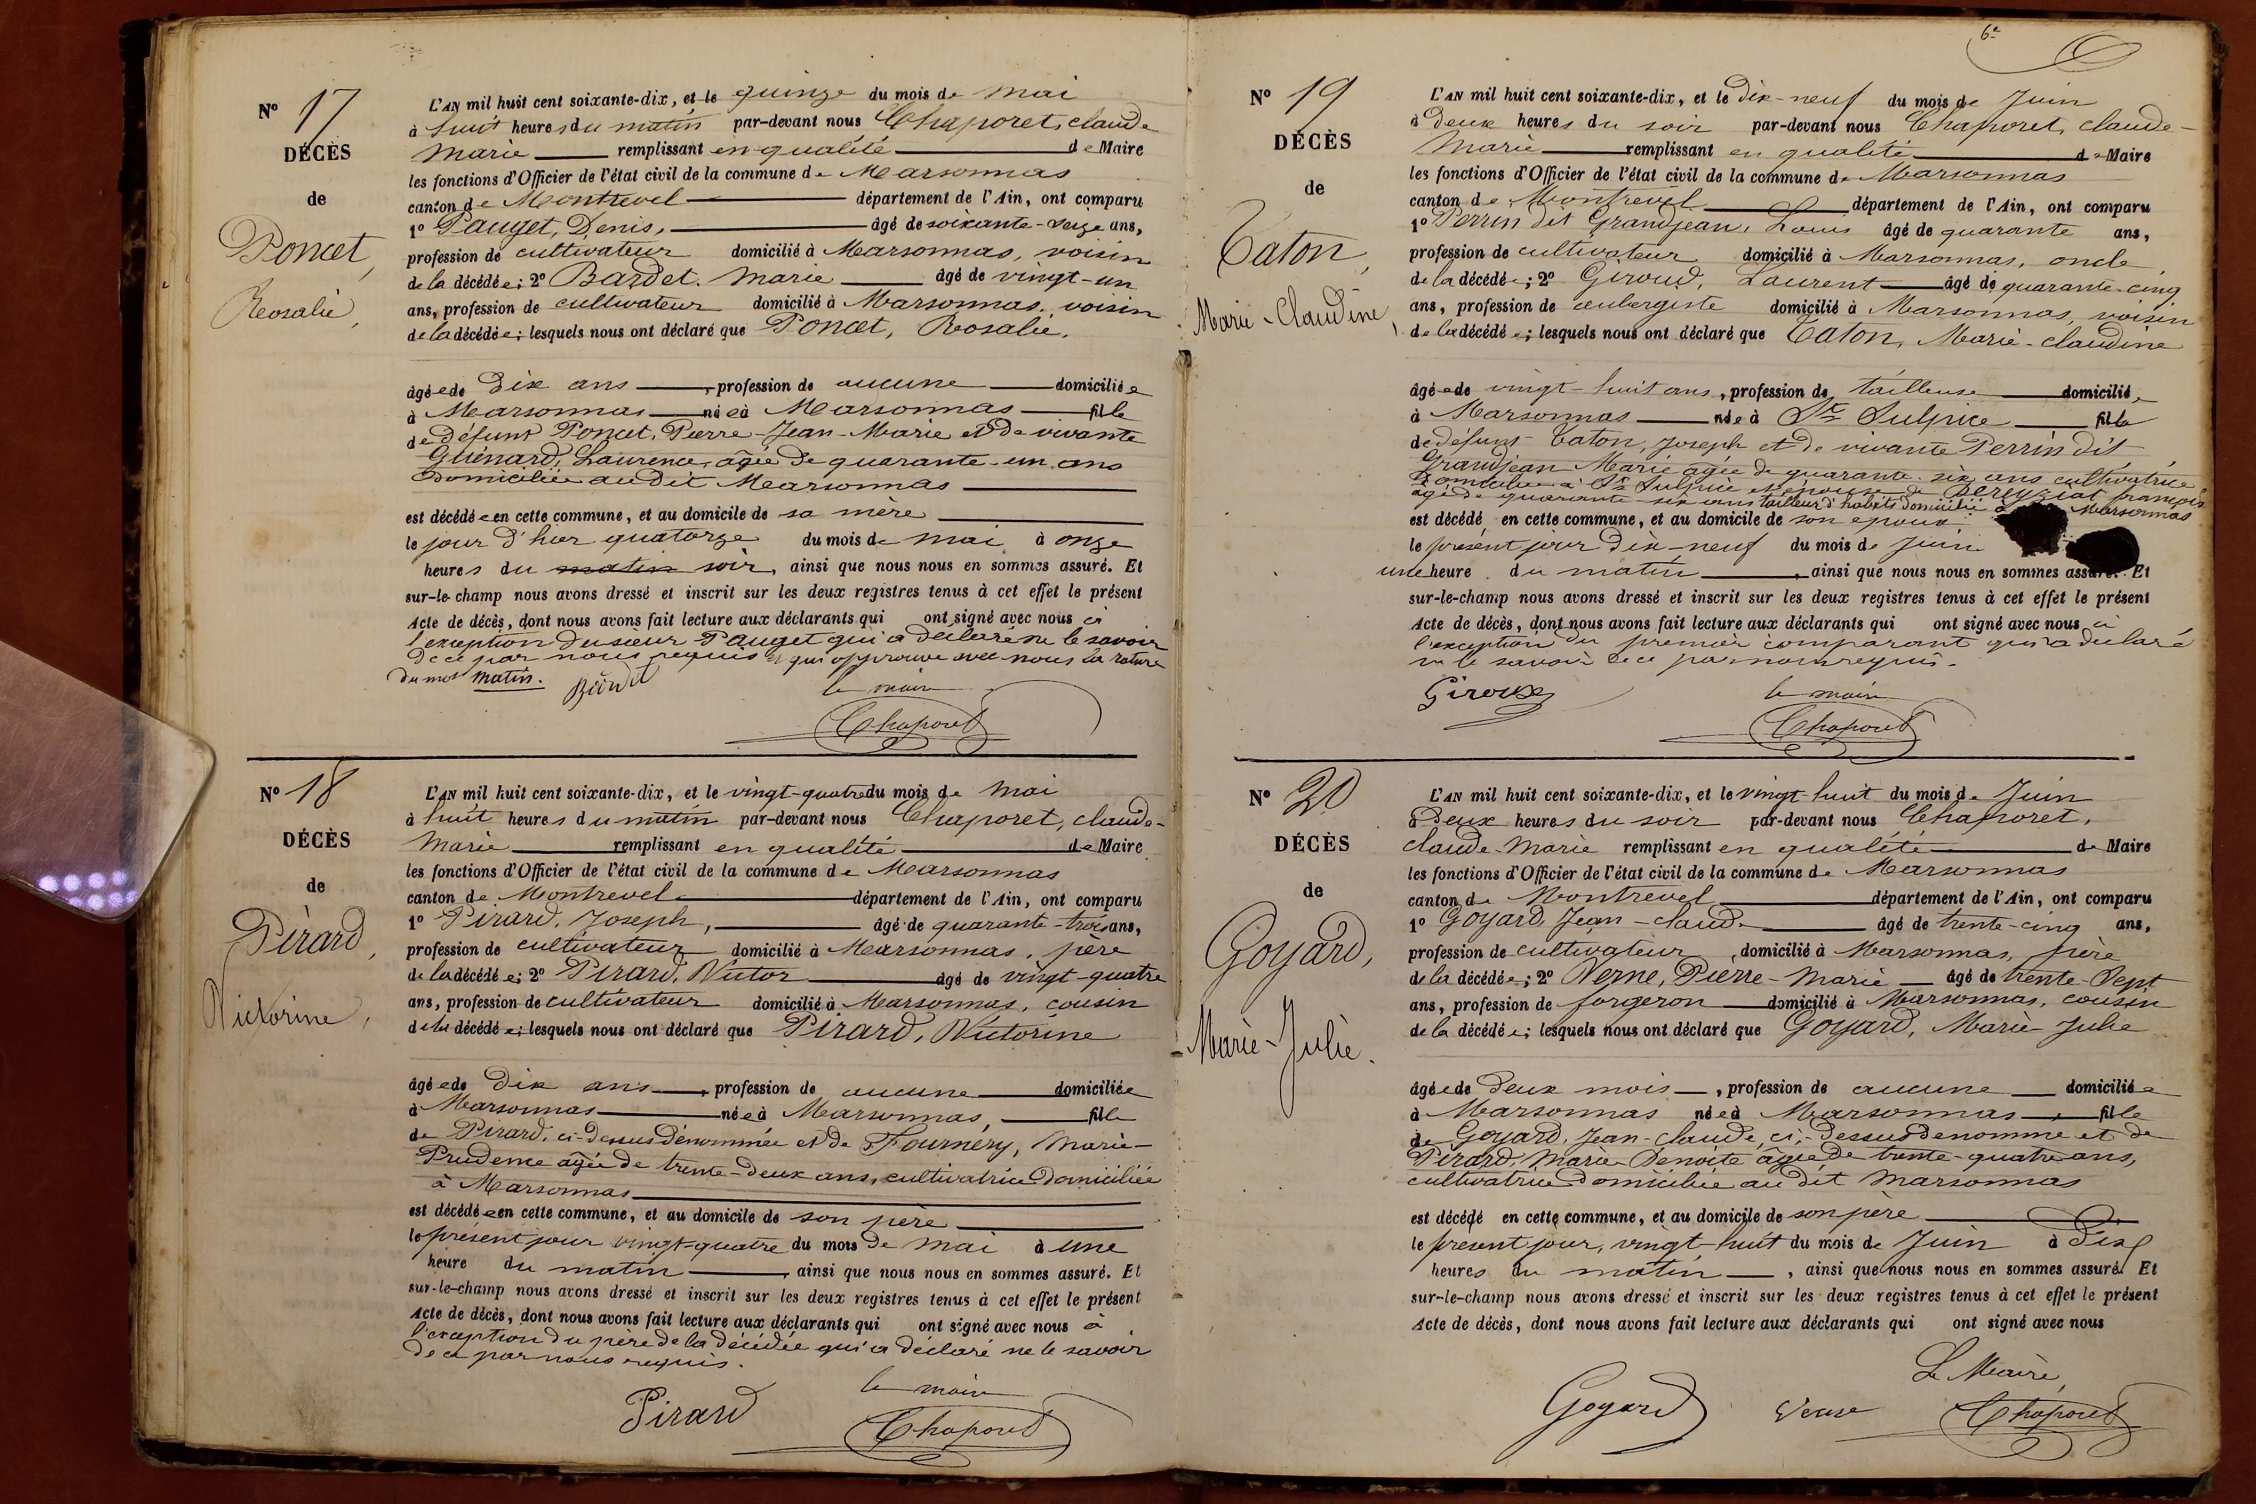 N° 17
DÉCÈS
de
Poncet,
Rosalie,
L'AN mil huit cent soixante-dix, et le quinze du mois de mai
à huit heures du matin par-devant nous Chaporet, claude
marie remplissant en qualité de Maire
les fonctions d'Officier de l'état civil de la commune de Marsonnas
canton de Montrevel département de l'Ain, ont comparu
1° Pauget, Denis, âgé de soixante-seize ans,
profession de cultivateur domicilié à Marsonnas, voisin
de la décédée; 2° Bardet. Marie âgé de vingt-un
ans, profession de cultivateur domicilié à Marsonnas, voisin
de la décédée; lesquels nous ont déclaré que Poncet, Rosalie,
âgée de dix ans, profession de aucune domiciliée
à Marsonnas née à Marsonnas fille
de défunt Poncet, Pierre-Jean-Marie et de vivante
Guénard, Laurence, agée de quarante-un ans
domiciliée audit Marsonnas
est décédée en cette commune, et au domicile de sa mère
le jour d'hier quatorze du mois de mai à onze
heures du matin soir, ainsi que nous nous en sommes assuré. Et
sur-le-champ nous avons dressé et inscrit sur les deux registres tenus à cet effet le présent
Acte de décès, dont nous avons fait lecture aux déclarants qui ont signé avec nous à
l'exception du sieur Pauget qui a déclaré ne le savoir
de ce par nous requis et qui approuve avec nous la rature
du mot matin.
le maire
Chaporet
N° 18
DÉCÈS
de
Pirard,
Victorine,
L'AN mil huit cent soixante-dix, et le vingt-quatre du mois de mai
à huit heures du matin par-devant nous Chaporet, claude-
Marie remplissant en qualité de Maire
les fonctions d'Officier de l'état civil de la commune de Marsonnas
canton de Montrevel département de l'Ain, ont comparu
1° Pirard, Joseph, âgé de quarante-trois ans,
profession de cultivateur domicilié à Marsonnas, père
de la décédée; 2° Pirard, Victor âgé de vingt-quatre
ans, profession de cultivateur domicilié à Marsonnas, cousin
de la décédée; lesquels nous ont déclaré que Pirard, Victorine
âgée de dix ans, profession de aucune domiciliée
à Marsonnas née à Marsonnas, fille
de Pirard, ci-dessus dénommée et de Fournéry, Marie-
Prudence agée de trente-deux ans, cultivatrice domiciliée
à Marsonnas
est décédée en cette commune, et au domicile de son père
le présent jour vingt-quatre du mois de mai à une
heure du matin, ainsi que nous nous en sommes assuré. Et
sur-le-champ nous avons dressé et inscrit sur les deux registres tenus à cet effet le présent
Acte de décès, dont nous avons fait lecture aux déclarants qui ont signé avec nous à
l'exception du père de la décédée qui a déclaré ne le savoir
de ce par nous requis.
le maire
Pirard Chaporet
6e
N° 19
DÉCÈS
de
Caton,
Marie-Claudine,
L'AN mil huit cent soixante-dix, et le dix-neuf du mois de Juin
à deux heures du soir par-devant nous Chaporet, claude-
Marie remplissant en qualité de Maire
les fonctions d'Officier de l'état civil de la commune de Marsonnas
canton de Montrevel département de l'Ain, ont comparu
1° Perrin dit Grandjean, Louis âgé de quarante ans,
profession de cultivateur domicilié à Marsonnas, oncle
de la décédée; 2° Giroud, Laurent âgé de quarante-cinq
ans, profession de aubergiste domicilié à Marsonnas, voisin
de la décédée; lesquels nous ont déclaré que Caton, Marie-claudine
âgée de vingt-huit ans, profession de tailleuse domiciliée
à Marsonnas née à St Sulpice fille
de défunt Caton, Joseph et de vivante Perrin dit
Grandjean Marie agée de quarante-six ans cultivatrice
domiciliée à St Sulpice et épouse de Pereyziat françois
agé de quarante-six ans tailleur d'habits domicilié à Marsonnas
est décédé en cette commune, et au domicile de son époux
le présent jour dix-neuf du mois de Juin
une heure du matin, ainsi que nous nous en sommes assuré. Et
sur-le-champ nous avons dressé et inscrit sur les deux registres tenus à cet effet le présent
Acte de décès, dont nous avons fait lecture aux déclarants qui ont signé avec nous à
l'exception du premier comparant qui a déclaré
ne le savoir de ce par nous requis.
Giroux le maire
Chaporet
N° 20
DÉCÈS
de
Goyard,
Marie-Julie.
L'AN mil huit cent soixante-dix, et le vingt-huit du mois de Juin
à deux heures du soir par-devant nous Chaporet,
claude-Marie remplissant en qualité de Maire
les fonctions d'Officier de l'état civil de la commune de Marsonnas
canton de Montrevel département de l'Ain, ont comparu
1° Goyard, Jean-claude âgé de trente-cinq ans,
profession de cultivateur, domicilié à Marsonnas, père
de la décédée; 2° Verne, Pierre-Marie âgé de trente-sept
ans, profession de forgeron domicilié à Marsonnas, cousin
de la décédée; lesquels nous ont déclaré que Goyard, Marie Julie
âgée de deux mois, profession de aucune domiciliée
à Marsonnas née à Marsonnas, fille
de Goyard, Jean-claude, ci-dessus denommé et de
Pirard, Marie-Benoîte agée de trente-quatre ans,
cultivatrice domiciliée au dit Marsonnas
est décédé en cette commune, et au domicile de son père
le présent jour, vingt-huit du mois de Juin à dix
heures du matin, ainsi que nous nous en sommes assuré. Et
sur-le-champ nous avons dressé et inscrit sur les deux registres tenus à cet effet le présent
Acte de décès, dont nous avons fait lecture aux déclarants qui ont signé avec nous
Le Maire,
Goyard Chaporet